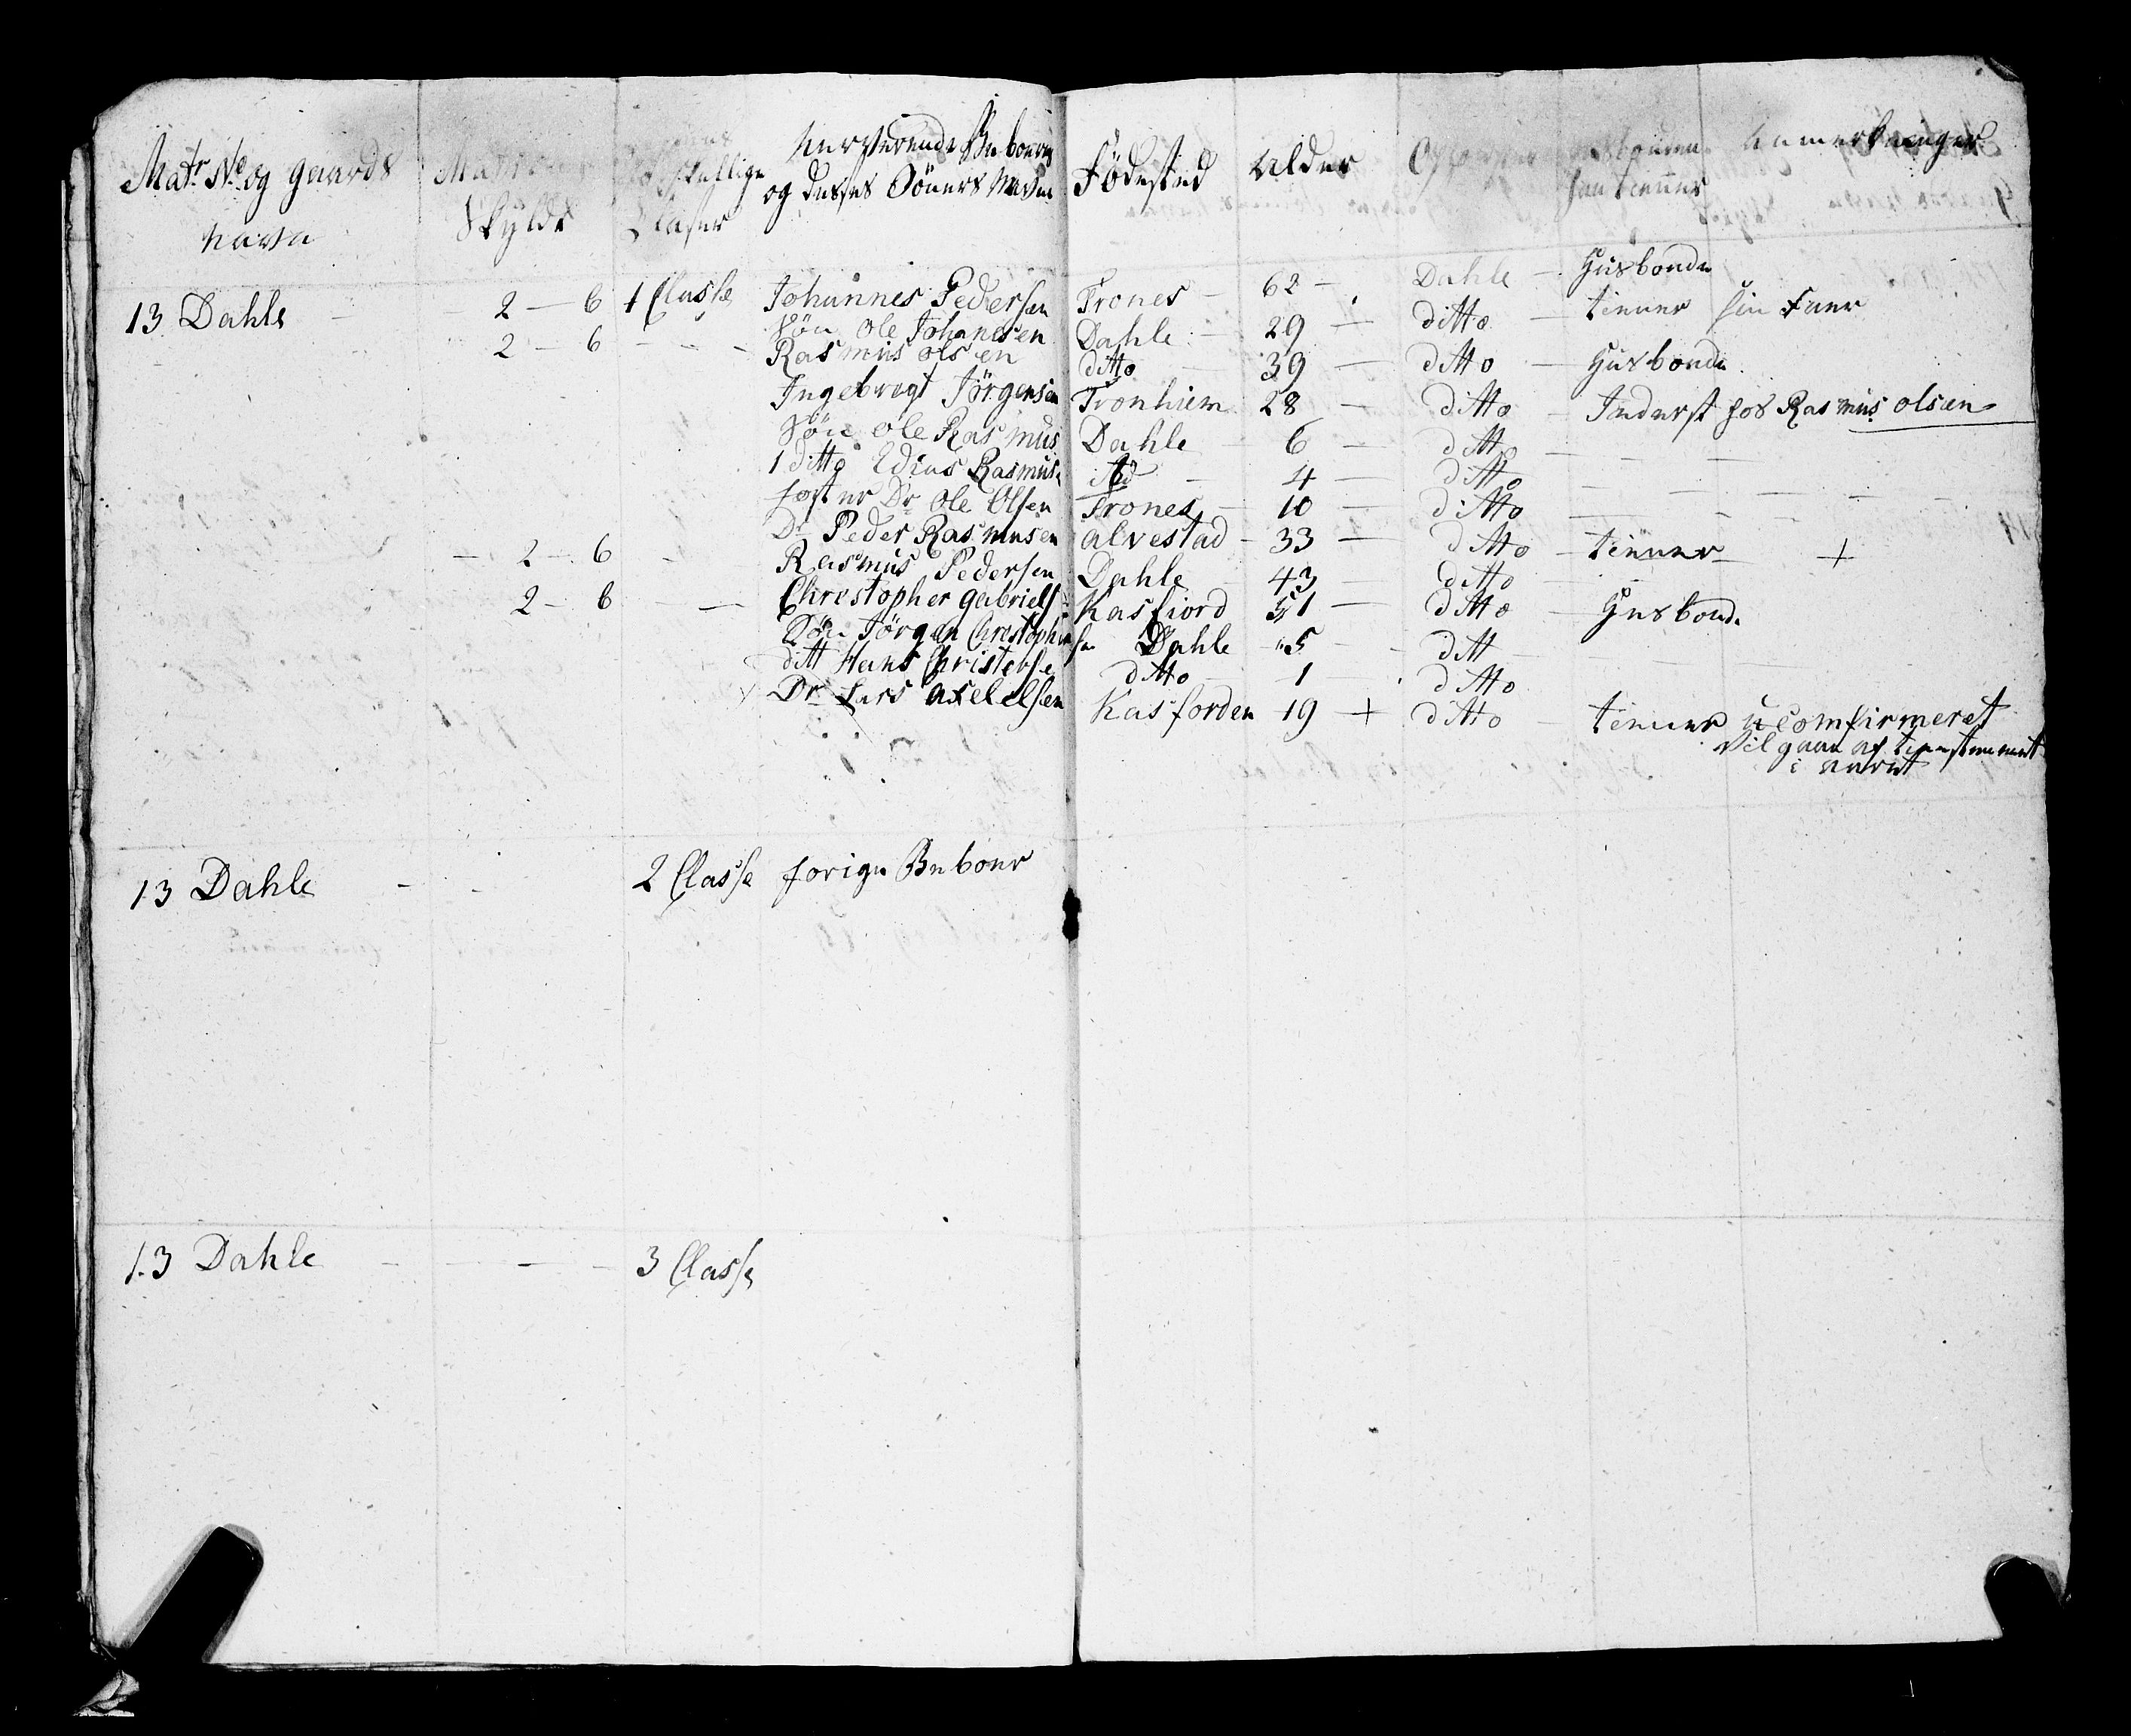 Matr No og gaards Navn
Skyld
forskellige Classer
Nerverende Beboere og desses Sönners Navn
Födested
Alder
Opholds
Anmerkninger
13 Dahle - 2 - 6 1 Classe Johannes Pedersen Trones - 62 - Dahle - Husbonde
Sön Ole Johanesen Dahle - 29 - ditto - tiener sin Faer
2 - 6 - - - Rasmus olsen ditto - 39 - ditto - Husbonde
Ingebregt Jörgensen Tronhiem 28 - ditto - Inderst hos Rasmus olsen
Sön Ole Rasmus Dahle - 6 - ditto
1 ditto Edias Rasmus - 4 - ditto
foster Dr Ole Olsen Trones - 10 - ditto
Dr Peder Rasmusen alvestad - 33 - ditto - tiener +
- 2 - 6 - Rasmus Pedersen Dahle - 43 - ditto
2 - 6 - Christopher gabriels Kasfiord 51 - ditto - Husbonde
Sön Jörgen Christophersen Dahle 5 - ditt
ditt Hans Christophe ditto - 1 ditto
Dr Lars axelelsen Kasforden 19 + ditto - tiener uComfirmeret
Vil gaae af tienstennest
i aaret
13 Dahle - - 2 Classe forige Beboer
13 Dahle - - - - 3 Classe